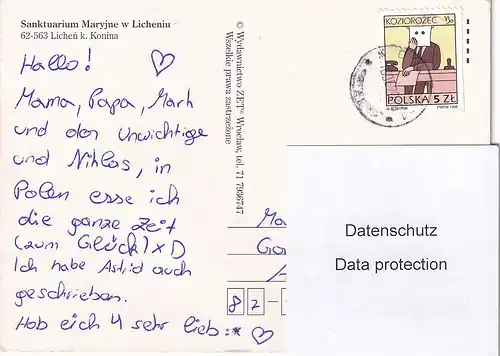 Sanktuarium Maryjne w Licheniu
62-563 Licheń k. Konina
Hallo! ♡
Mama, Papa, Mark
und den Unwichtige
und Niklas, in
Polen esse ich
die ganze Zeit
(zum Glück!) xD
Ich habe Astrid auch
geschrieben.
Hab eich 4 sehr lieb :* ♡
© Wydawnictwo ZET® Wrocław, tel. 71 7896747
Wszelkie prawa zastrzeżone
KOZIOROŻEC ♑
POLSKA 5 ZŁ
82-
Datenschutz
Data protection